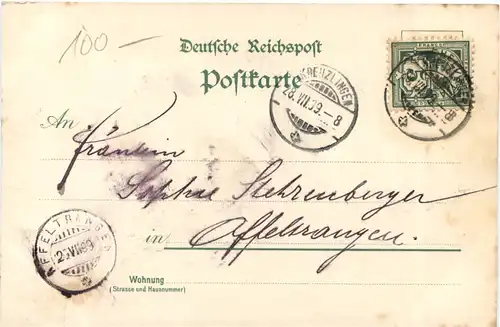 100 —
Deutsche Reichspost
Postkarte
FRANCO
KREUZLINGEN
26.VII.99.-8
An
Fräulein
Sophie Stehrenberger
in Affeltrangen.
AFFELTRANGEN
Wohnung
(Strasse und Hausnummer)